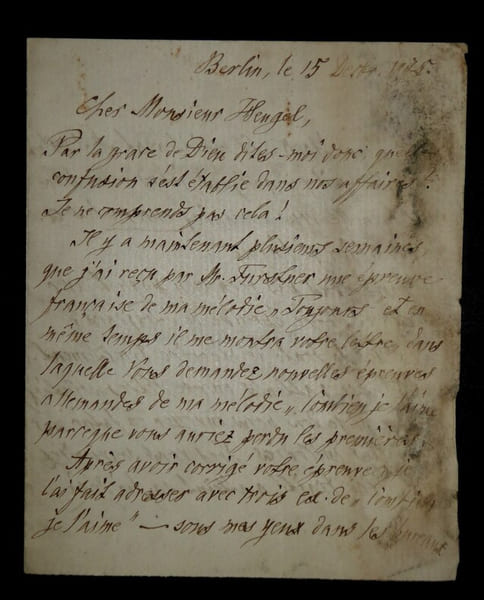 Berlin, le 15
Cher Monsieur Hengel,
Par la grace de Dieu dites-moi donc quelle
confusion s'est établie dans nos affaires?
Je ne comprends pas cela!
Il y a maintenant plusieurs semaines
que j'ai reçu par Mr. Furstner une épreuve
française de ma mélodie „Toujours" et en
même temps il me montra votre lettre, dans
laquelle Vous demandez nouvelles épreuves
allemandes de ma mélodie „Combien je t'aime
parceque vous auriez perdu les premières.
Après avoir corrigé votre épreuve je
l'ai fait adresser avec trois ex. de „Combien
je t'aime" — sous mes yeux dans les bureaux